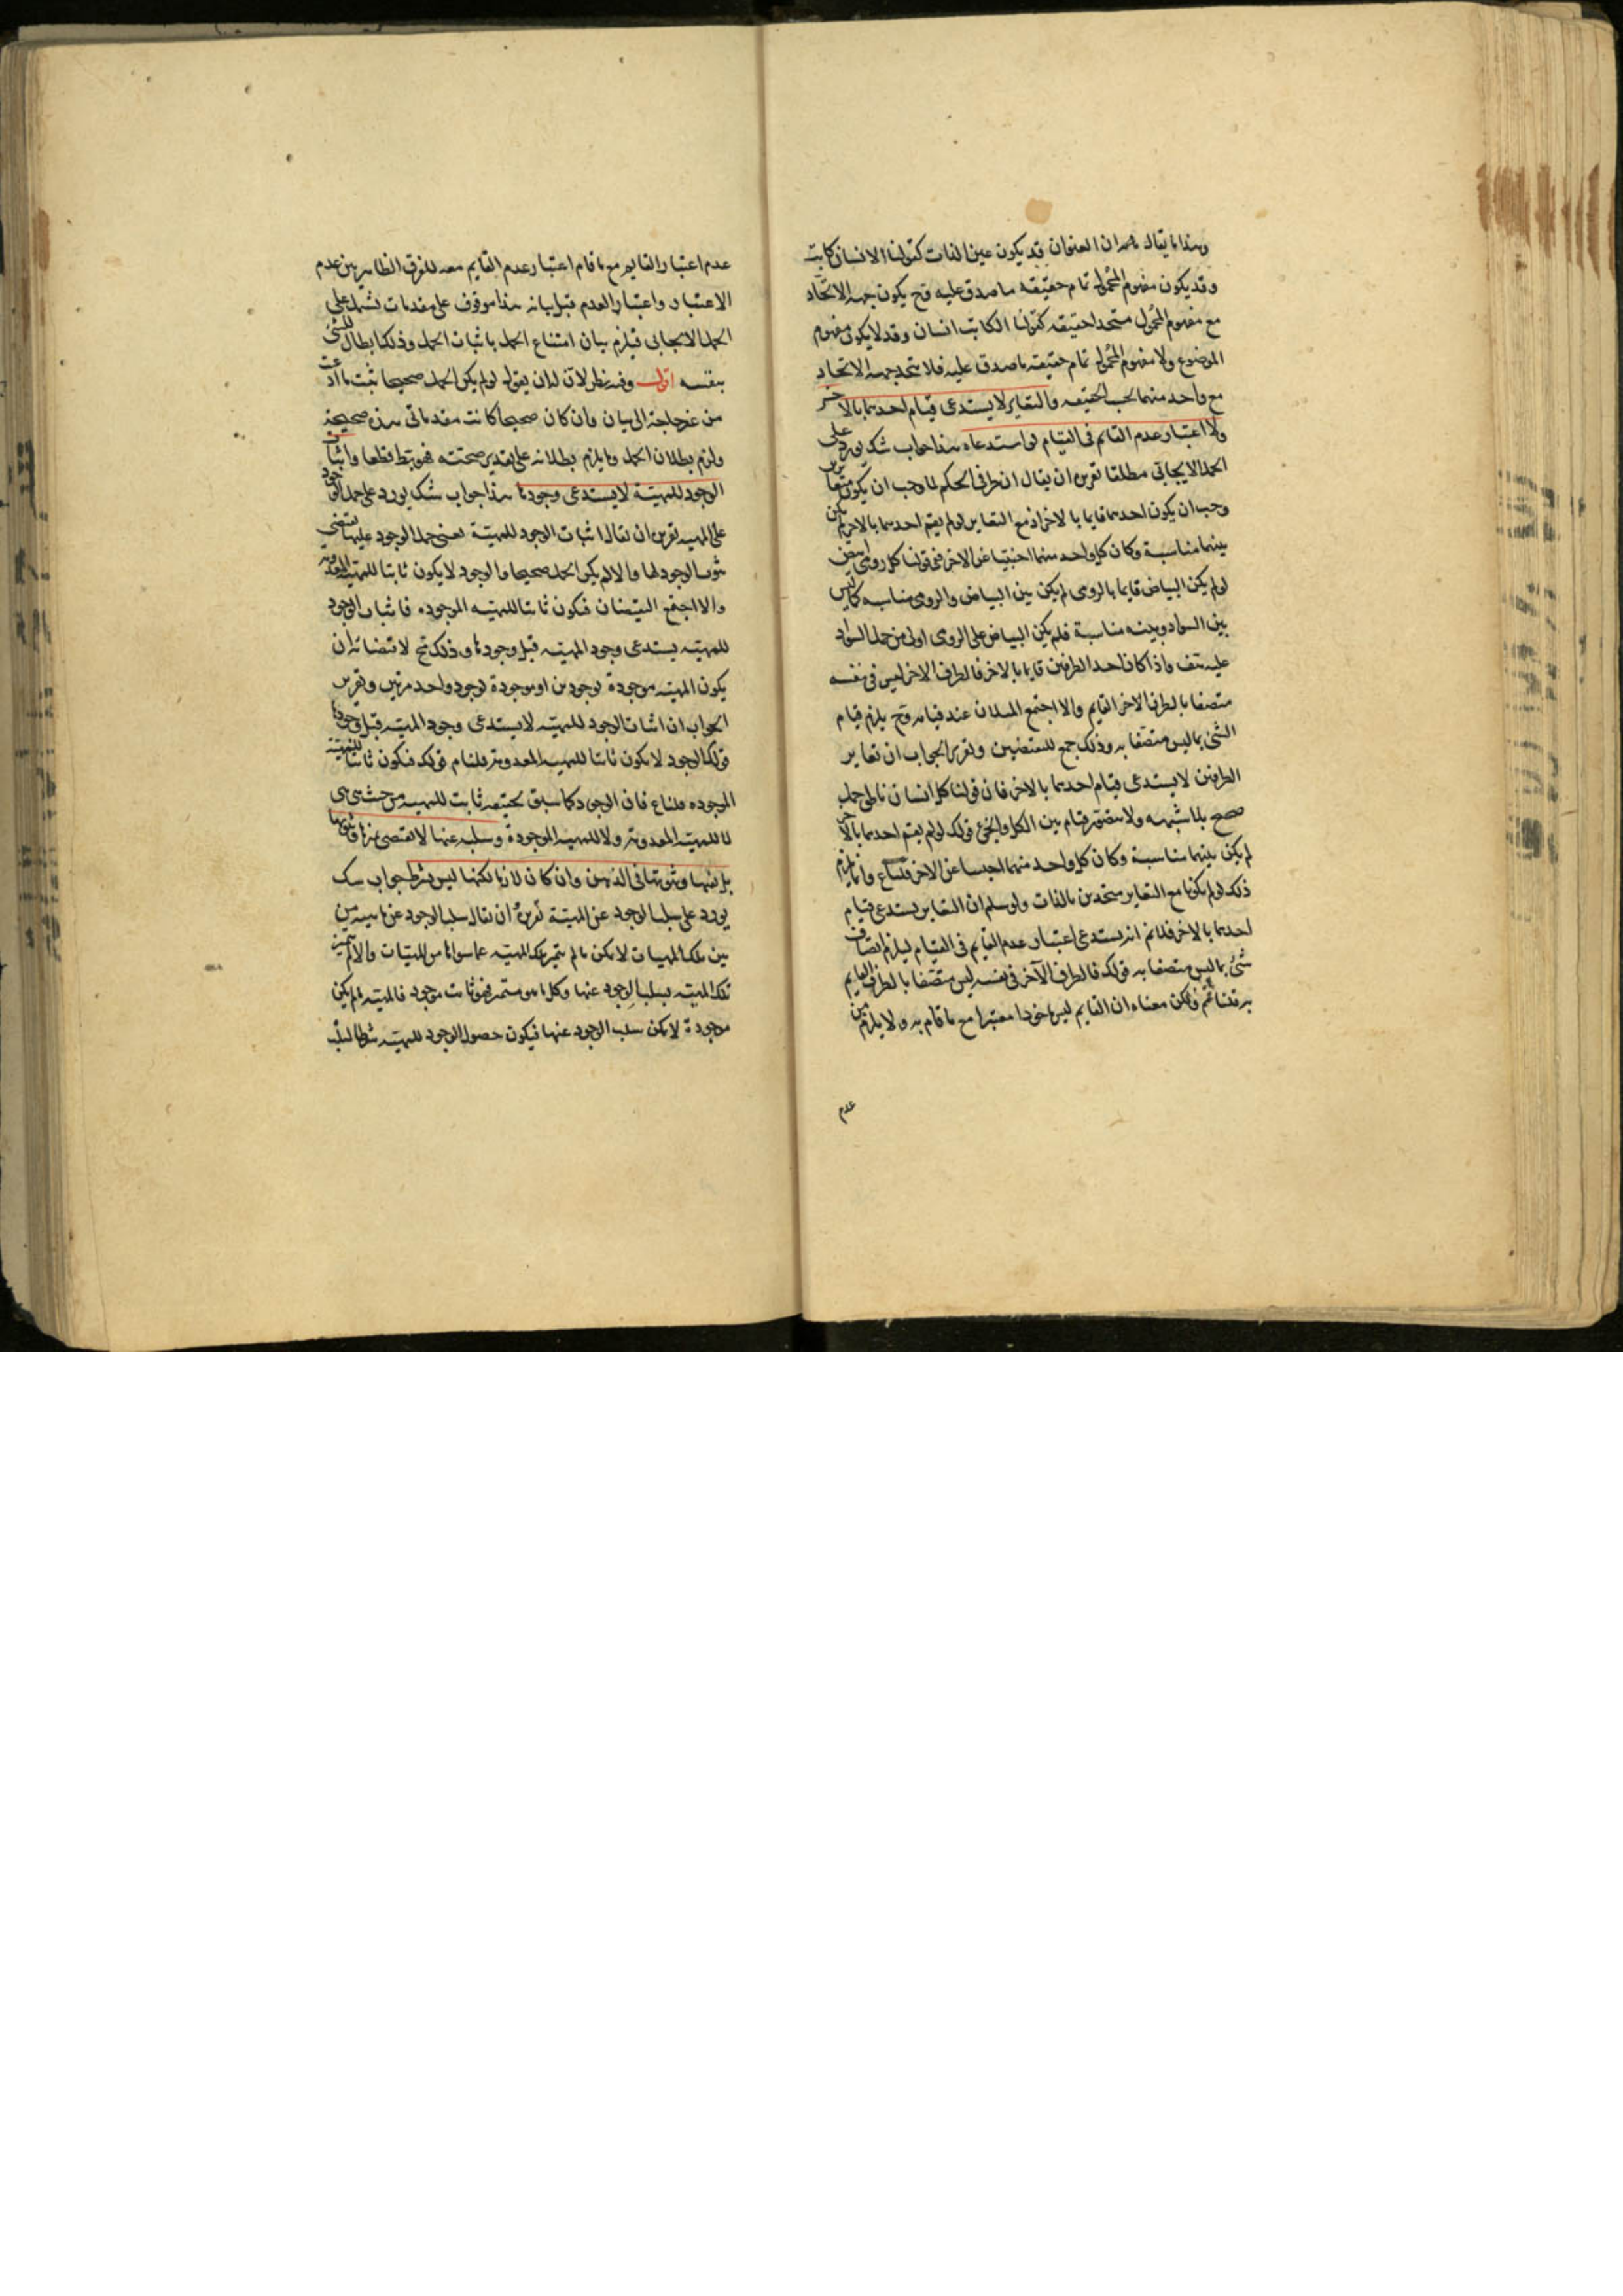 وهذا ما يقال ان العنوان قد يكون عين الذات كقولنا الانسان كاتب
وقد يكون مفهوم المحمول تمام حقيقة ما صدق عليه وح يكون جهة الاتحاد
مع مفهوم المحمول متحدا حقيقة كقولنا الكاتب انسان وقد لا يكون مفهوم
الموضوع ولا مفهوم المحمول تمام حقيقة ما صدق عليه فلا تتحد جهة الاتحاد
مع واحد منهما بحسب الحقيقة والتغاير لا يستدعى قيام احدهما بالاخر
ولا اعتبار عدم القائم فى القيام لو استدعاه هذا جواب شك يورد على
الحمل الايجابى مطلقا تقريره ان يقال ان طرفى الحكم لما وجب ان يكون متغايرين
وجب ان يكون احدهما قايما بالاخر اذ مع التغاير لو لم يقم احدهما بالاخر لم يكن
بينهما مناسبة وكان كل واحد منهما اجنبيا عن الاخر ففى قولنا كل رومى ابيض
لو لم يكن البياض قايما بالرومى لم يكن بين البياض والرومى مناسبة كما ليس
بين السواد وبينه مناسبة فلم يكن البياض على الرومى اولى من حمل السواد
عليه هف واذا كان احد الطرفين قايما بالاخر فالطرف الاخر ليس فى نفسه
متصفا بالطرف الاخر القايم والا اجتمع المثلان عند قيامه وح يلزم قيام
الشئ بما ليس متصفا به وذلك جمع للنقيضين وتقرير الجواب ان تغاير
الطرفين لا يستدعى قيام احدهما بالاخر فان قولنا كل انسان ناطق حمل
صحيح بلا شبهه ولا يتصور قيام بين الكل والجزء قولك لو لم يقم احدهما بالاخر
لم يكن بينهما مناسبة وكان كل واحد منهما اجنبيا عن الاخر قلنا ع وانما يلزم
ذلك لو لم يكونا مع التغاير متحدين بالذات ولو سلم ان التغاير يستدعى قيام
احدهما بالاخر فلا نم انه يستدعى اعتبار عدم القايم فى القيام ليلزم اتصاف
شئ بما ليس متصفا به قولك فالطرف الآخر فى نفسه ليس متصفا بالطرف القايم
به قلنا نعم ولكن معناه ان القايم ليس ماخوذا معتبرا مع ما قام به ولا يلزم من
عدم
عدم اعتبار القايم مع ما قام اعتبار عدم القايم معه للفرق الظاهر بين عدم
الاعتبار واعتبار العدم قيل بيانه هذا موقوف على مقدمات تشتمل على
الحمل الايجابى فيلزم بيان امتناع الحمل باثبات الحمل وذلك ابطال للشئ
بنفسه اقول وفيه نظر لان له ان يقول لو لم يكن الحمل صحيحا ثبت ما ادعيت
من غير حاجة الى بيان وان كان صحيحا كانت مقدماتى هذه صحيحة
ولزم بطلان الحمل وما يلزم بطلانه على تقدير صحته فهو بط قطعا واثبات
الوجود للمهية لا يستدعى وجودها هذا جواب شك يورد على حمل الوجود
على المهية تقريره ان يقال اثبات الوجود للمهية يعنى حمل الوجود عليها يقتضى
ثبوت الوجود لها والا لم يكن الحمل صحيحا والوجود لا يكون ثابتا للمهية المعدومة
والا اجتمع النقيضان فيكون ثابتا للمهية الموجوده فاثبات الوجود
للمهية يستدعى وجود المهية قبل وجودها وذلك مح لاقتضائه ان
يكون المهية موجودة بوجودين او موجودة بوجود واحد مرتين وتقرير
الجواب ان اثبات الوجود للمهية لا يستدعى وجود المهية قبل وجودها
قولك الوجود لا يكون ثابتا للمهية المعدومة قلنا م قولك فيكون ثابتا للمهية
الموجوده قلنا ع فان الوجود كما سبق تحقيقه ثابت للمهية من حيث هى هى
لا للمهية المعدومة ولا للمهية الموجودة وسلبه عنها لا يقتضى تميزها وثبوتها
بل نفيها وثبوتها فى الذهن وان كان لازما لكنها ليس بشرط جواب شك
يورد على سلب الوجود عن المهية تقريره ان يقال سلب الوجود عن مهية من
بين تلك المهيات لا يمكن ما لم تتميز تلك المهية عما سواها من المهيات والا لم يتميز
تلك المهية بسلب الوجود عنها وكل ما هو متميز فهو ثابت موجود فالمهية ما لم يكن
موجودة لا يمكن سلب الوجود عنها فيكون حصول الوجود للمهية شرطا لسلب